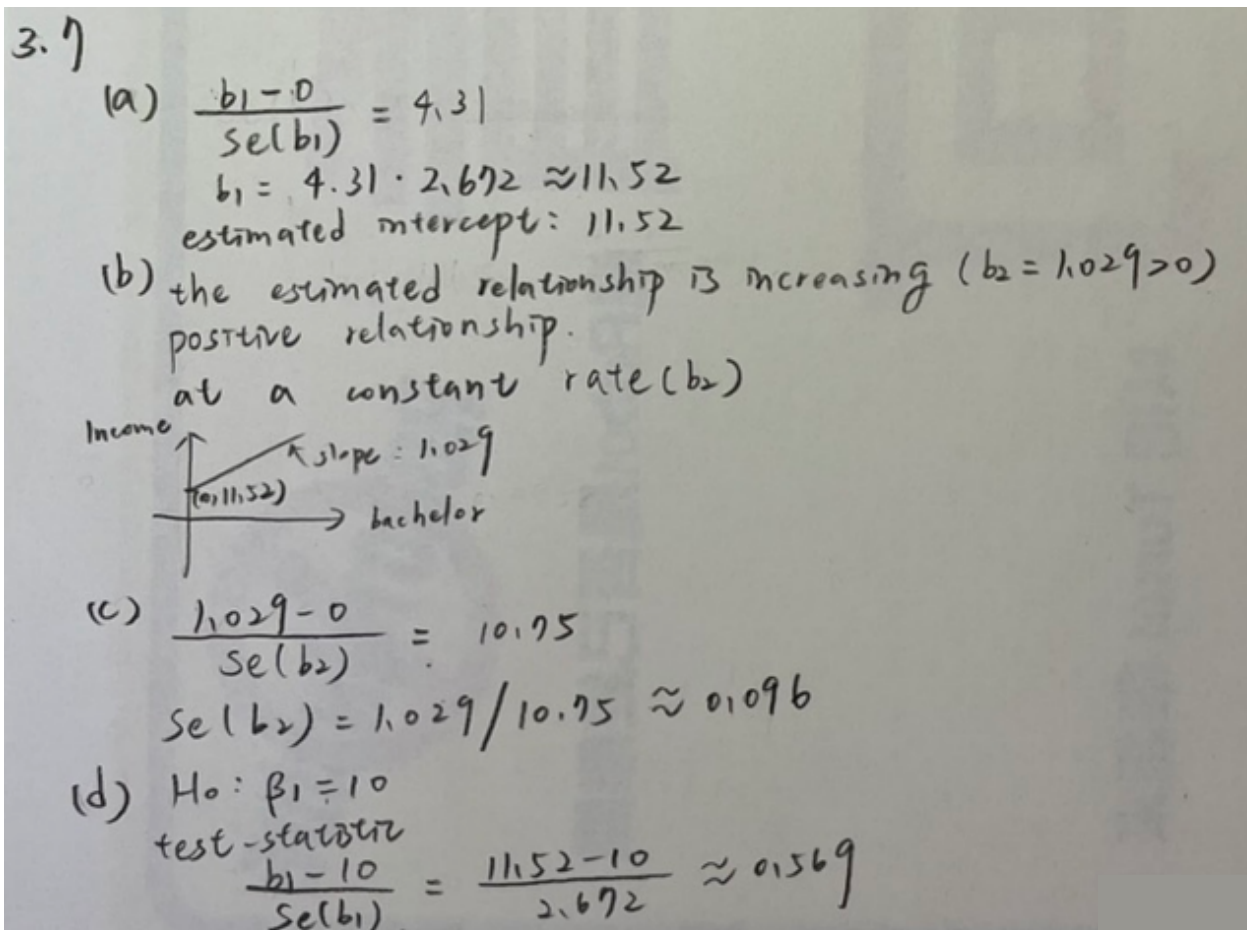 3.7
(a) b1 - 0 / se(b1) = 4.31
b1 = 4.31 · 2.672 ≈ 11.52
estimated intercept: 11.52
(b) the estimated relationship is increasing (b2 = 1.029 > 0)
positive relationship.
at a constant rate (b2)
Income
slope: 1.029
(0, 11.52)
bachelor
(c) 1.029 - 0 / se(b2) = 10.75
se(b2) = 1.029 / 10.75 ≈ 0.096
(d) H0: β1 = 10
test-statistic
b1 - 10 / se(b1) = 11.52 - 10 / 2.672 ≈ 0.569